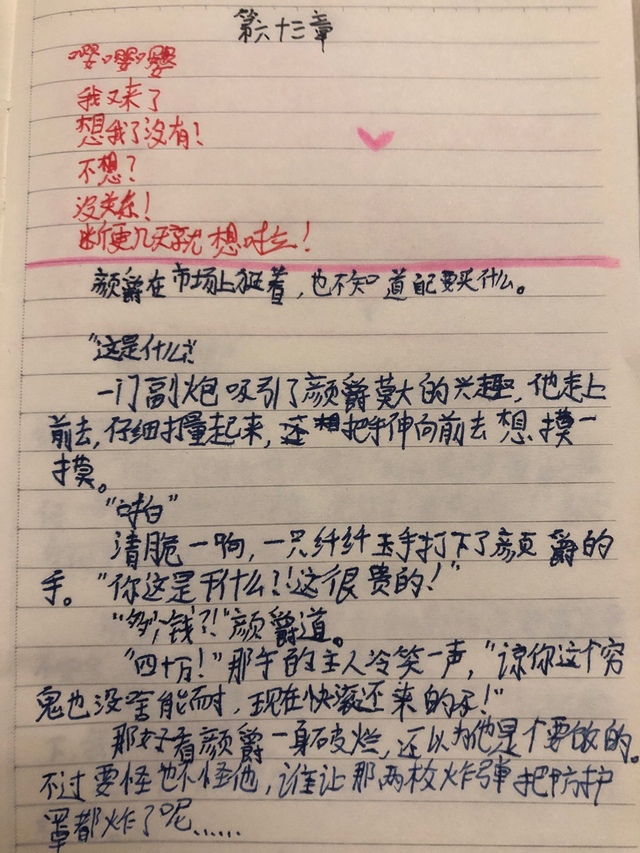 第六十三章
嘤嘤嘤
我又来了
想我了没有！
不想？
没关系！
断更几天就想咕！
颜爵在市场上逛着，也不知道自己要买什么。
"这是什么！"
一门副炮吸引了颜爵莫大的兴趣，他走上
前去，仔细打量起来，还想把手伸向前去想摸一
摸。
"啪"
清脆一响，一只纤纤玉手打下了颜爵的
手。"你这是干什么？！这很贵的！"
"多少钱？！"颜爵道。
"四十万！"那手的主人冷笑一声，"谅你这个穷
鬼也没啥能耐，现在快滚还来的及！"
那女子看颜爵一身破烂，还以为他是个要饭的。
不过要怪也不怪他，谁让那两枚炸弹把防护
罩都炸了呢……